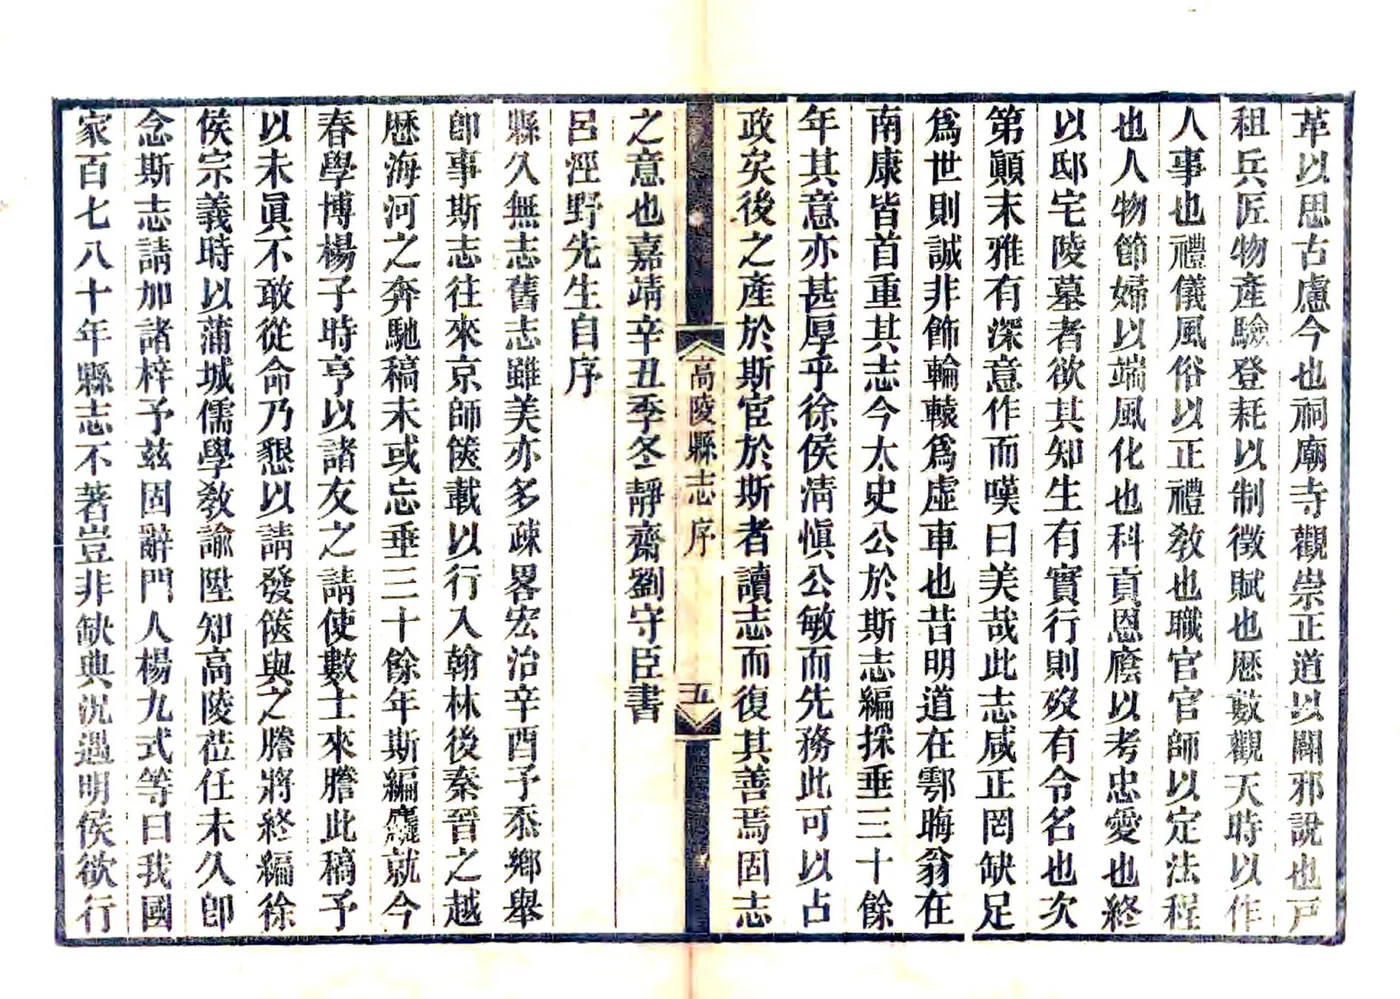 革以思古慮今也祠廟寺觀崇正道以闢邪說也戸
租兵匠物產驗登耗以制徵賦也歷數觀天時以作
人事也禮儀風俗以正禮敎也職官官師以定法程
也人物節婦以端風化也科貢恩廕以考忠愛也終
以邸宅陵墓者欲其知生有實行則歿有令名也次
第顚末雅有深意作而嘆曰美哉此志咸正罔缺足
爲世則誠非飾輪轅爲虛車也昔明道在鄠晦翁在
南康皆首重其志今太史公於斯志編採垂三十餘
年其意亦甚厚乎徐侯淸愼公敏而先務此可以占
政矣後之產於斯宦於斯者讀志而復其善焉固志
之意也嘉靖辛丑季冬靜齋劉守臣書
高陵縣志序
五
呂涇野先生自序
縣久無志舊志雖美亦多疎畧宏治辛酉予忝鄕舉
卽事斯志往來京師篋載以行入翰林後秦晉之越
歷海河之奔馳稿未或忘垂三十餘年斯編麤就今
春學博楊子時亨以諸友之請使數士來謄此稿予
以未眞不敢從命乃懇以請發篋與之謄將終編徐
侯宗義時以蒲城儒學敎諭陞知高陵莅任未久卽
念斯志請加諸梓予玆固辭門人楊九式等曰我國
家百七八十年縣志不著豈非缺典況遇明侯欲行